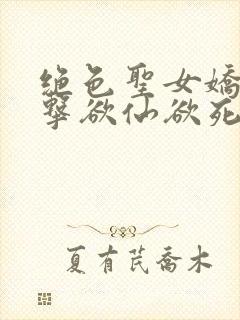 绝色聖女嬌
撃欲仙欲死
夏有芪喬木